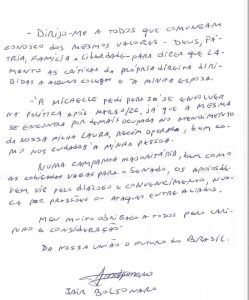 - DIRIJO-ME A TODOS QUE COMUNGAM
CONOSCO DOS MESMOS VALORES - DEUS, PÁ-
TRIA, FAMÍLIA E LIBERDADE - PARA DIZER QUE LA-
MENTO AS CRÍTICAS DA PRÓPRIA DIREITA DIRI-
GIDAS A ALGUNS COLEGAS E À MINHA ESPOSA.
- À MICHELLE PEDI PARA SÓ SE ENVOLVER
NA POLÍTICA APÓS MARÇO/26, JÁ QUE A MESMA
SE ENCONTRA POR DEMAIS OCUPADA NO ATENDIMENTO
DA NOSSA FILHA LAURA, RECÉM OPERADA, BEM CO-
MO NOS CUIDADOS À MINHA PESSOA.
NUMA CAMPANHA MAJORITÁRIA, BEM COMO
AS COBIÇADAS VAGAS PARA O SENADO, OS APOIOS DE-
VEM VIR PELO DIÁLOGO E CONVENCIMENTO, NUN-
CA POR PRESSÕES OU ATAQUES ENTRE ALIADOS.
MEU MUITO OBRIGADO A TODOS PELO CARI-
NHO E CONSIDERAÇÃO
DA NOSSA UNIÃO O FUTURO DO BRASIL.
JAIR BOLSONARO